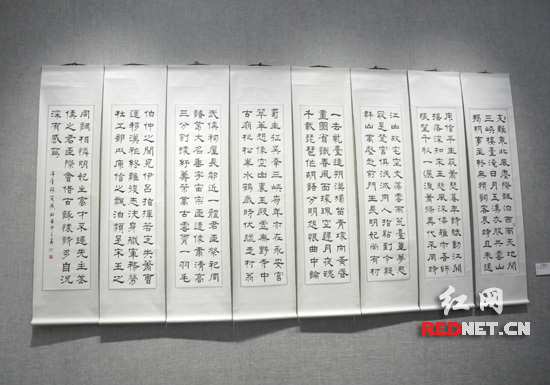 支離東北風塵際飄泊西南天地間
三峽樓臺淹日月五溪衣服共雲山
羯胡事主終無賴詞客哀時且未還
庾信平生最蕭瑟暮年詩賦動江關
搖落深知宋玉悲風流儒雅亦吾師
悵望千秋一灑淚蕭條異代不同時
江山故宅空文藻雲雨荒臺豈夢思
最是楚宮俱泯滅舟人指點到今疑
群山萬壑赴荊門生長明妃尚有村
一去紫臺連朔漠獨留青塚向黃昏
畫圖省識春風面環珮空歸月夜魂
千載琵琶作胡語分明怨恨曲中論
蜀主征吳幸三峽崩年亦在永安宮
翠華想像空山裏玉殿虛無野寺中
古廟杉松巢水鶴歲時伏臘走村翁
武侯祠屋長鄰近一體君臣祭祀同
諸葛大名垂宇宙宗臣遺像肅清高
三分割據紆籌策萬古雲霄一羽毛
伯仲之間見伊呂指揮若定失蕭曹
運移漢祚終難復志決身殲軍務勞
杜工部以庾信之飄泊類是宋玉之
同調相憐明妃生當不逢先主
侯之君臣際會借古詠懷多自況
深有感焉
红网
REDNET.CN